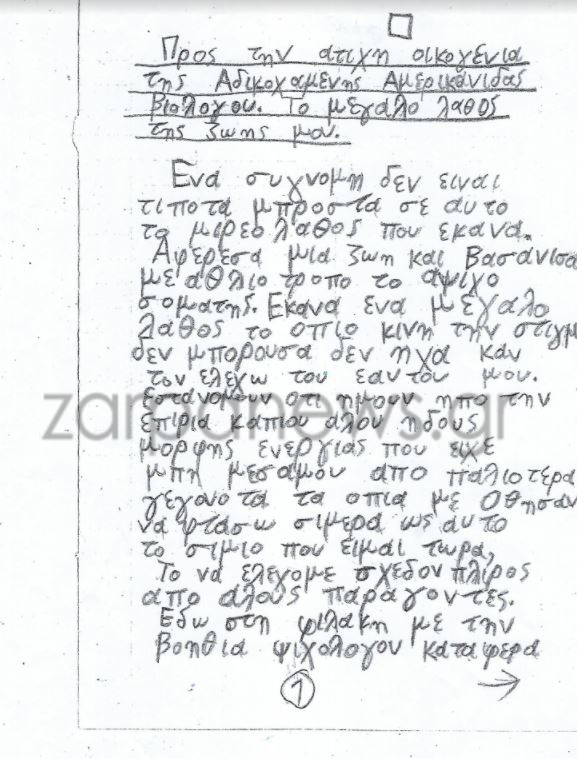 Προς την ατιχη οικογενια
της Αδικοχαμενης Αμερικανιδας
βιολογου. Το μεγαλο λαθος
της ζωης μου.
Ενα συχνομη δεν ειναι
τιποτα μπροστα σε αυτο
το μιρεο λαθος που εκανα.
Αφερεσα μια ζωη και βασανισα
με αθλιο τροπο το αψιχο
σοματης. Εκανα ενα μεγαλο
λαθος το οπιο κινη την στιγμ
δεν μπορουσα δεν ηχα καν
τον ελεχω του εαυτου μου.
εστανομουν οτι ημουν ηπο την
επιρια καπιου αλου ηδους
μορφης ενεργιας που ειχε
μπη μεσαμου απο παλιοτερα
γεγονοτα τα οπια με οθησαν
να φτασω σιμερα ως αυτο
το σιμιο που ειμαι τωρα,
Το να ελεγομε σχεδον πλιρος
απο αλους παραγοντες.
Εδω στη φιλακη με την
βοηθια ψιχολογου καταφερα
1
zarpanews.gr